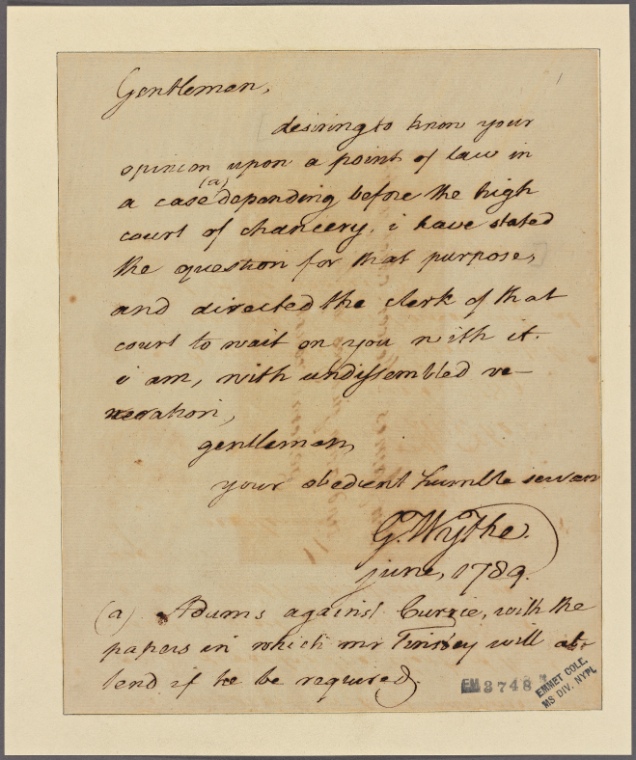 Gentlemen,
desiring to know your
opinion upon a point of law in
a case (a) depending before the high
court of chancery, i have stated
the question for that purpose,
and directed the clerk of that
court to wait on you with it.
i am, with undissembled ve-
neration,
gentlemen,
your obedient humble servan
G. Wythe.
june, 1789.
(a) Adams against Currie, with the
papers in which mr Tinsley will at-
tend if he be required.
EM 3748
EMMET COLL.
MS DIV. NYPL